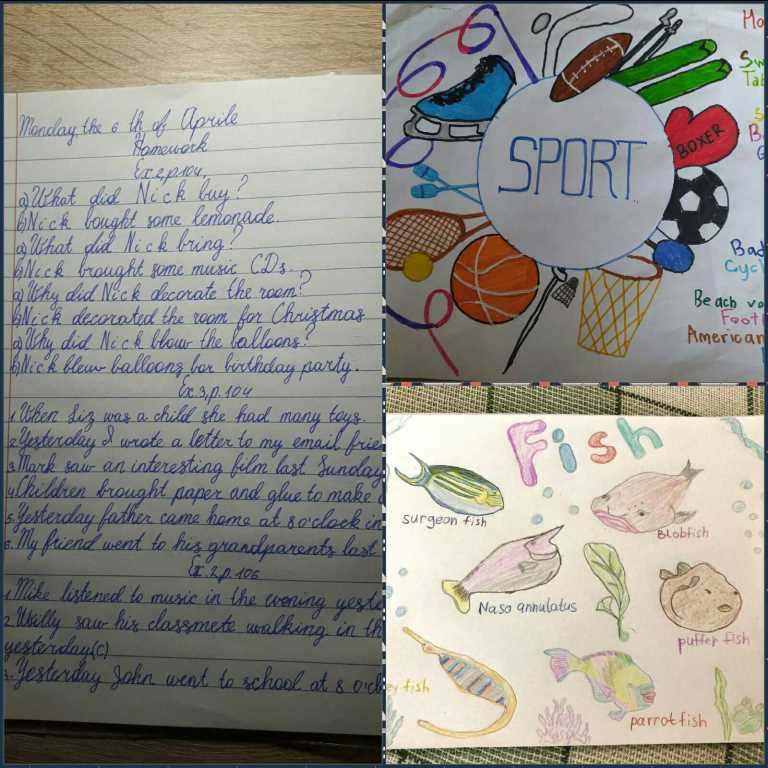 Monday the 6 th of Aprile
Homework
Ex 2, p. 104,
a) What did Nick buy?
b) Nick bought some lemonade.
a) What did Nick bring?
b) Nick brought some music CDs.
a) Why did Nick decorate the room?
b) Nick decorated the room for Christmas
a) Why did Nick blow the balloons?
b) Nick blew balloons bor birthday party.
Ex. 3, p. 104
1. When Liz was a child she had many toys.
2. Yesterday I wrote a letter to my email frie
3. Mark saw an interesting film last Sunday
4. Children brought paper and glue to make
5. Yesterday father came home at 8 o'clock in
6. My friend went to his grandparents last
Ex. 2, p. 105
1. Mike listened to music in the evening yeste
2. Willy saw his classmete walking in th
yesterday(c)
3. Yesterday John went to school at 8 o'cl
SPORT
BOXER
Mo
Sw
Tab
Bad
Cycl
Beach vo
Foot
American
Fish
surgeon fish
Blobfish
Naso annulatus
puffer fish
ey fish
parrotfish